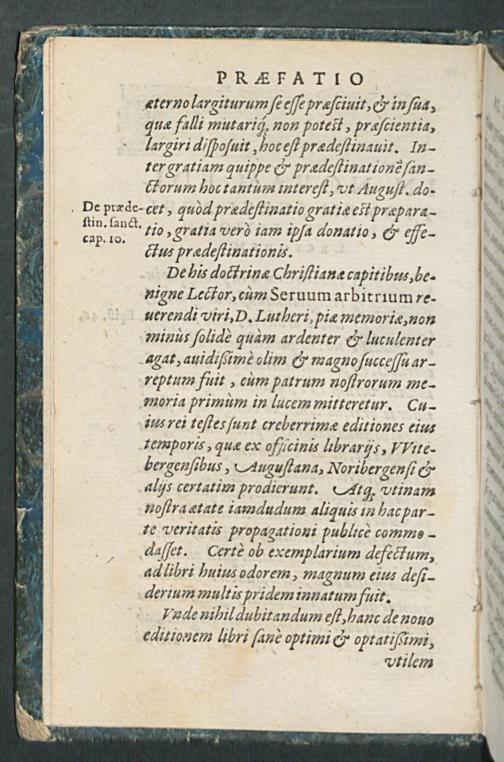 PRÆFATIO
æterno largiturum se esse præsciuit, & in sua,
quæ falli mutariq́. non potest, præscientia,
largiri disposuit, hoc est prædestinauit. In-
ter gratiam quippe & prædestinationē san-
ctorum hoc tantùm interest, vt August. do-
De præde-
stin. sanct.
cap. 10.
cet, quòd prædestinatio gratiæ est præpara-
tio, gratia verò iam ipsa donatio, & effe-
ctus prædestinationis.
De his doctrinæ Christianæ capitibus, be-
nigne Lector, cùm Seruum arbitrium re-
uerendi viri, D. Lutheri, piæ memoriæ, non
minùs solidè quàm ardenter & luculenter
agat, auidissimè olim & magno successu ar-
reptum fuit, cùm patrum nostrorum me-
moria primùm in lucem mitteretur. Cu-
ius rei testes sunt creberrimæ editiones eius
temporis, quæ ex officinis librarijs, VVite-
bergensibus, Augustana, Noribergensi &
alijs certatim prodierunt. Atq́. vtinam
nostra ætate iamdudum aliquis in hac par-
te veritatis propagationi publicè commo-
dasset. Certè ob exemplarium defectum,
ad libri huius odorem, magnum eius desi-
derium multis pridem innatum fuit.
Vnde nihil dubitandum est, hanc de nouo
editionem libri sanè optimi & optatissimi,
vtilem